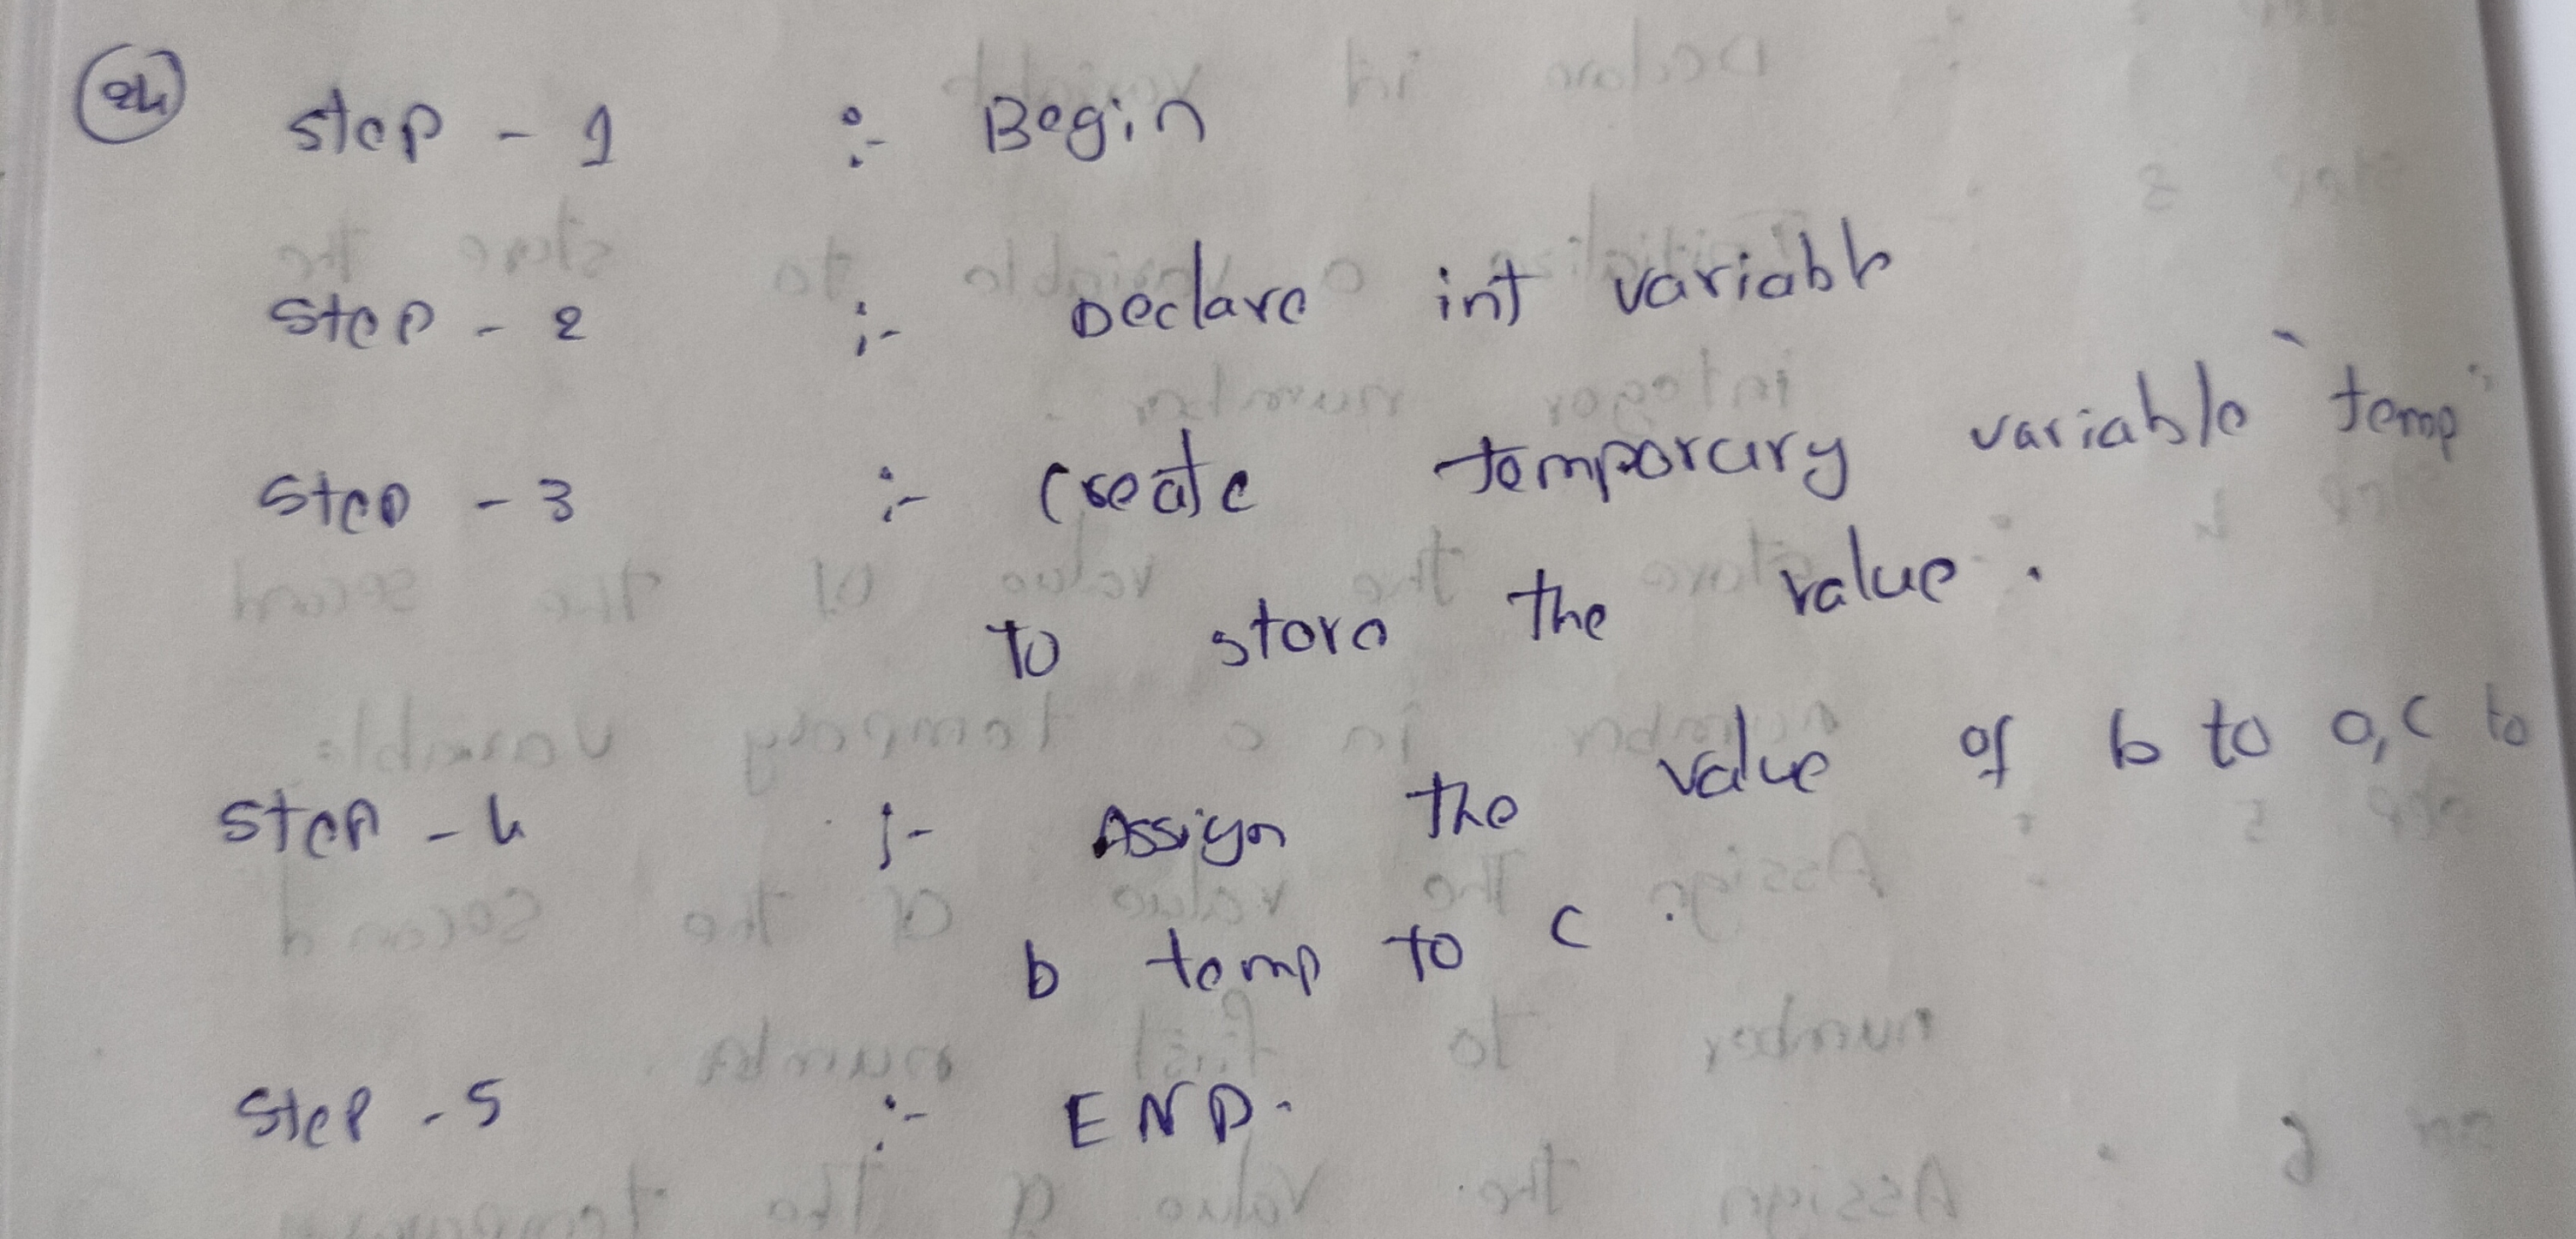 24 Step - 1 :- Begin
Step - 2 :- Declare int variable
Step - 3 :- Create temporary variable "temp"
to store the value.
Step - 4 :- Assign the value of b to a, c to
b temp to c.
Step - 5 :- END.